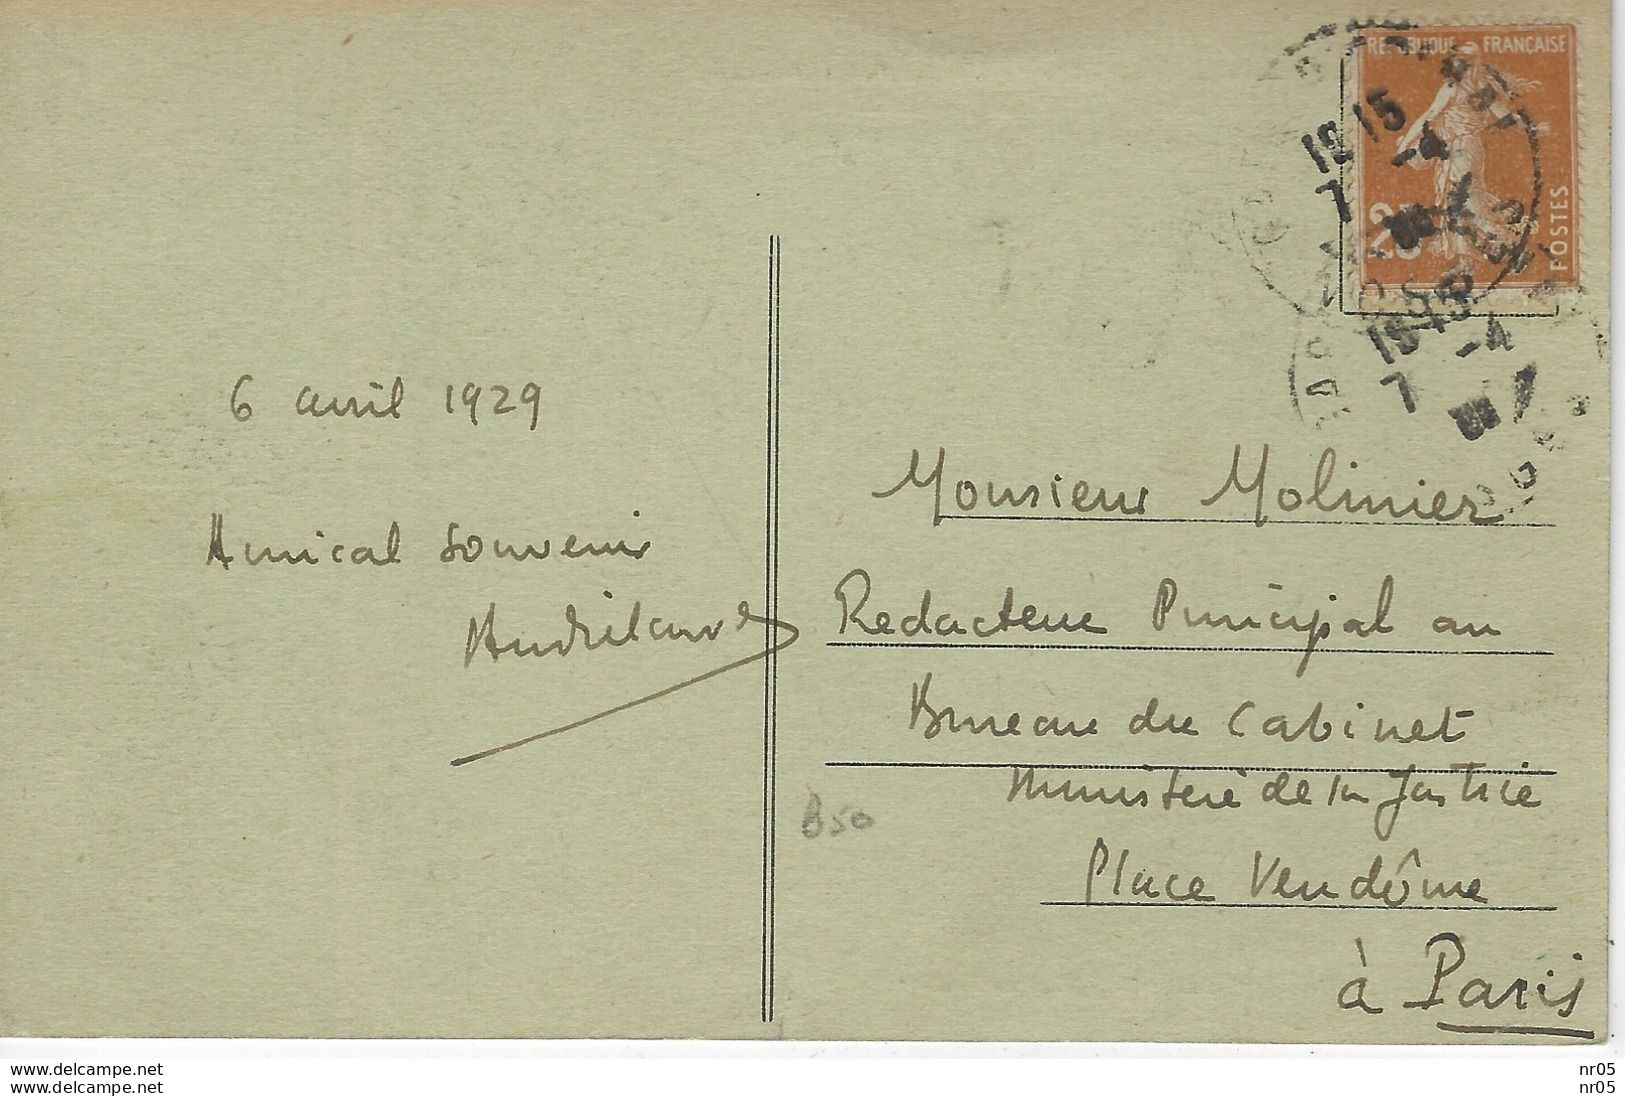 REPUBLIQUE FRANÇAISE
POSTES
19 15
7 -4
19 15
7 -4
6 avril 1929
Amical souvenir
Monsieur Molinier
Redacteur Principal au
Bureau du Cabinet
Ministère de la Justice
Place Vendôme
à Paris
B50
www.delcampe.net
www.delcampe.net
nr05
nr05